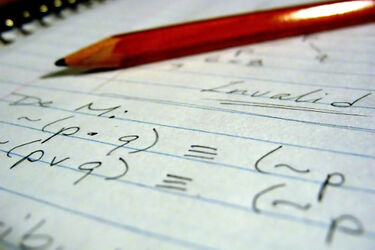 Invalid
De M.
~(p • q) ≡ (~p
~(p v q) ≡ (~p